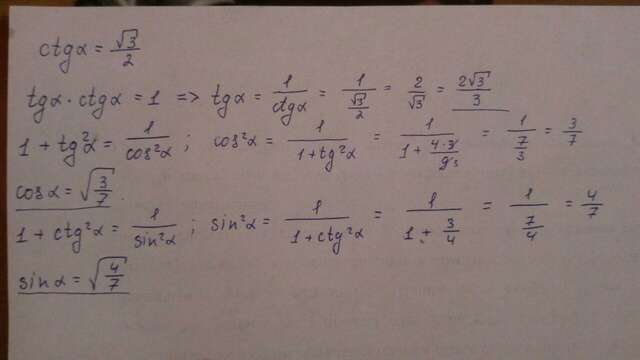 ctgα = √3/2
tgα · ctgα = 1 => tgα = 1/ctgα = 1/(√3/2) = 2/√3 = 2√3/3
1 + tg²α = 1/cos²α ; cos²α = 1/(1+tg²α) = 1/(1 + 4·3/9₃) = 1/(7/3) = 3/7
cosα = √(3/7) .
1 + ctg²α = 1/sin²α ; sin²α = 1/(1+ctg²α) = 1/(1 + 3/4) = 1/(7/4) = 4/7
sinα = √(4/7)